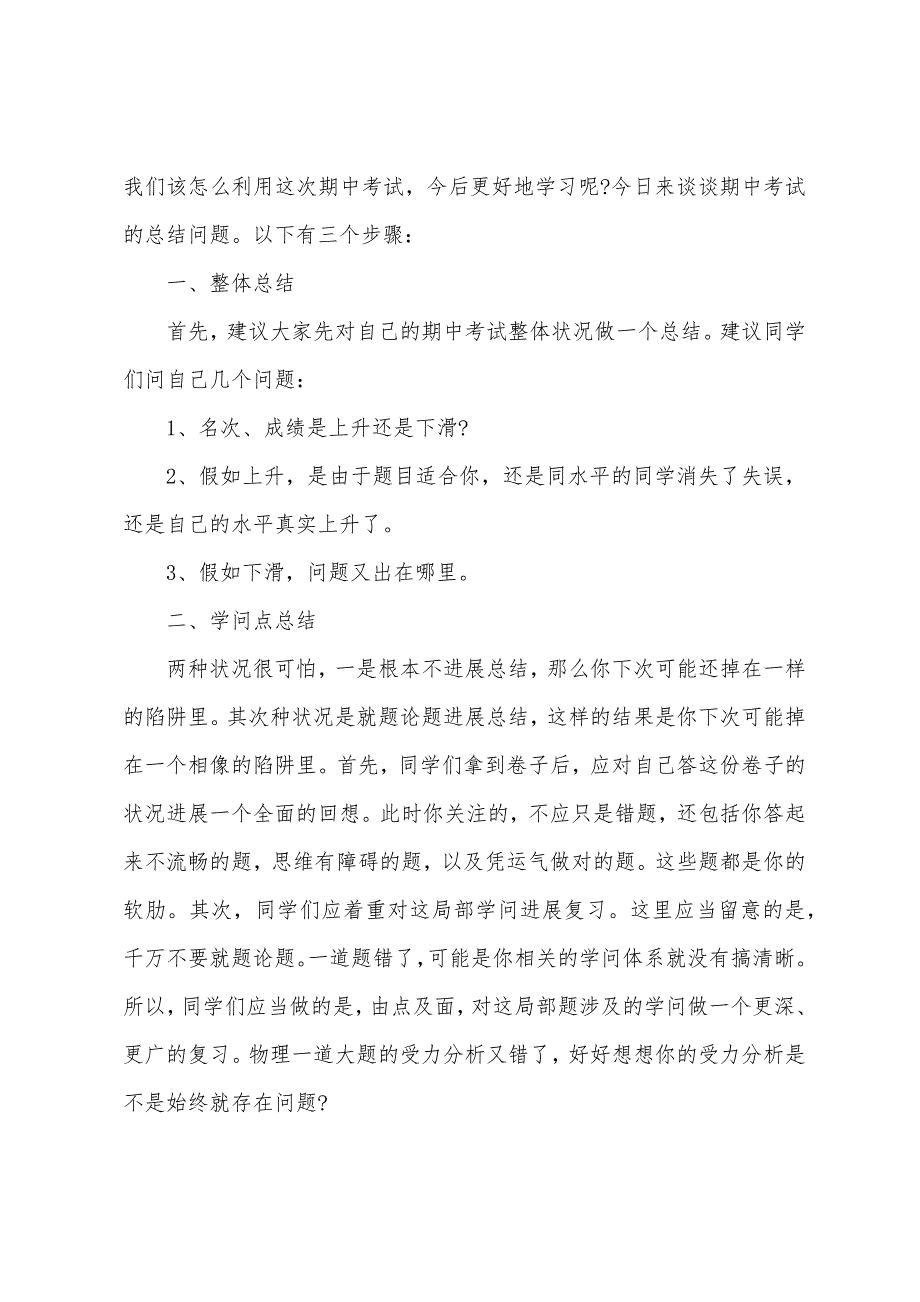 我们该怎么利用这次期中考试，今后更好地学习呢?今日来谈谈期中考试
的总结问题。以下有三个步骤：
一、整体总结
首先，建议大家先对自己的期中考试整体状况做一个总结。建议同学
们问自己几个问题：
1、名次、成绩是上升还是下滑?
2、假如上升，是由于题目适合你，还是同水平的同学消失了失误，
还是自己的水平真实上升了。
3、假如下滑，问题又出在哪里。
二、学问点总结
两种状况很可怕，一是根本不进展总结，那么你下次可能还掉在一样
的陷阱里。其次种状况是就题论题进展总结，这样的结果是你下次可能掉
在一个相像的陷阱里。首先，同学们拿到卷子后，应对自己答这份卷子的
状况进展一个全面的回想。此时你关注的，不应只是错题，还包括你答起
来不流畅的题，思维有障碍的题，以及凭运气做对的题。这些题都是你的
软肋。其次，同学们应着重对这局部学问进展复习。这里应当留意的是，
千万不要就题论题。一道题错了，可能是你相关的学问体系就没有搞清晰。
所以，同学们应当做的是，由点及面，对这局部题涉及的学问做一个更深、
更广的复习。物理一道大题的受力分析又错了，好好想想你的受力分析是
不是始终就存在问题?